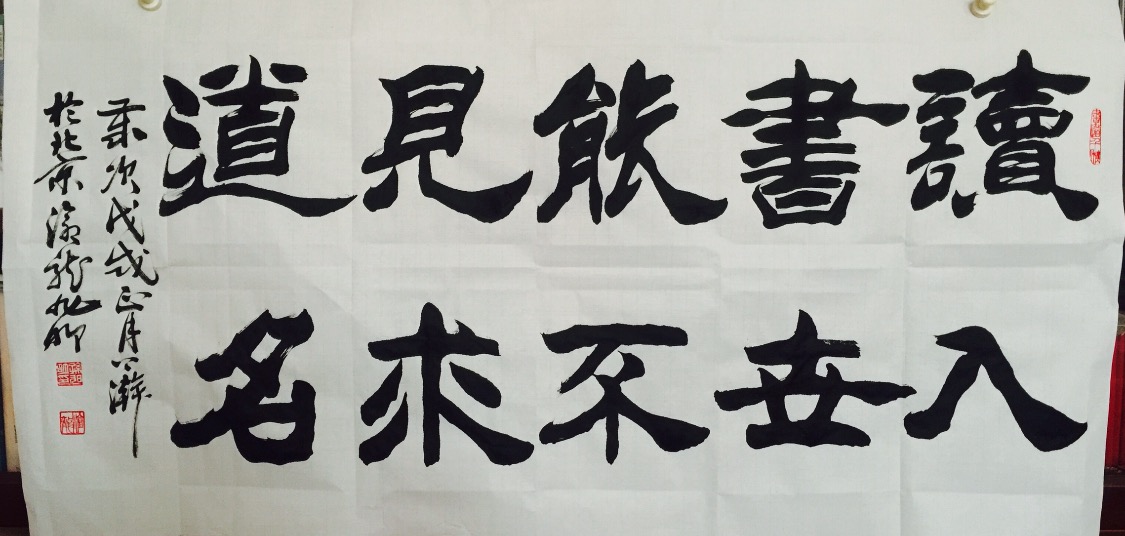 讀書能見道
入世不求名
歲次戊戌正月
於北京